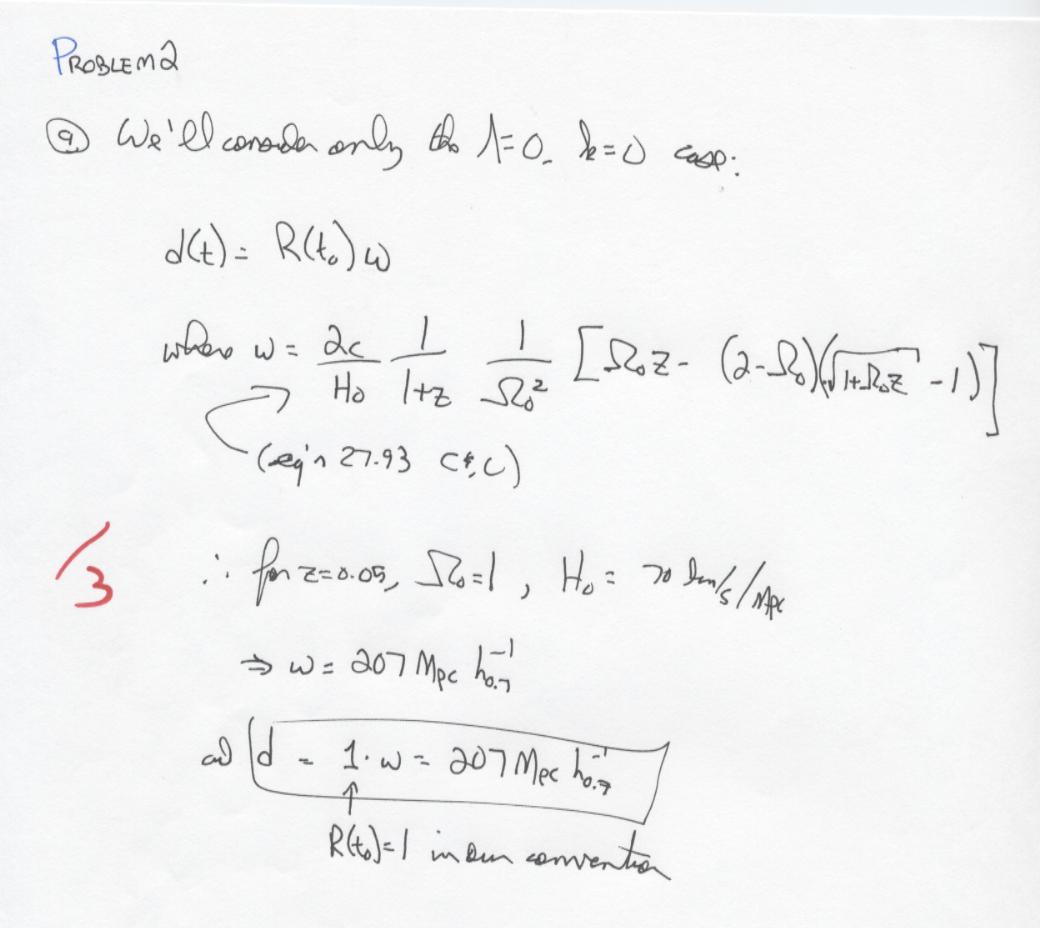 PROBLEM 2
(a) We'll consider only the Λ=0, k=0 case:
d(t) = R(t₀) ω
where ω = 2c/H₀ 1/(1+z) 1/Ω₀² [Ω₀z - (2-Ω₀)(√(1+Ω₀z) - 1)]
(eq'n 27.93 C&C)
/3
∴ for z=0.05, Ω₀=1, H₀ = 70 km/s/Mpc
⇒ ω = 207 Mpc h₀.₇⁻¹
ad d = 1·ω = 207 Mpc h₀.₇⁻¹
↑
R(t₀)=1 in our convention